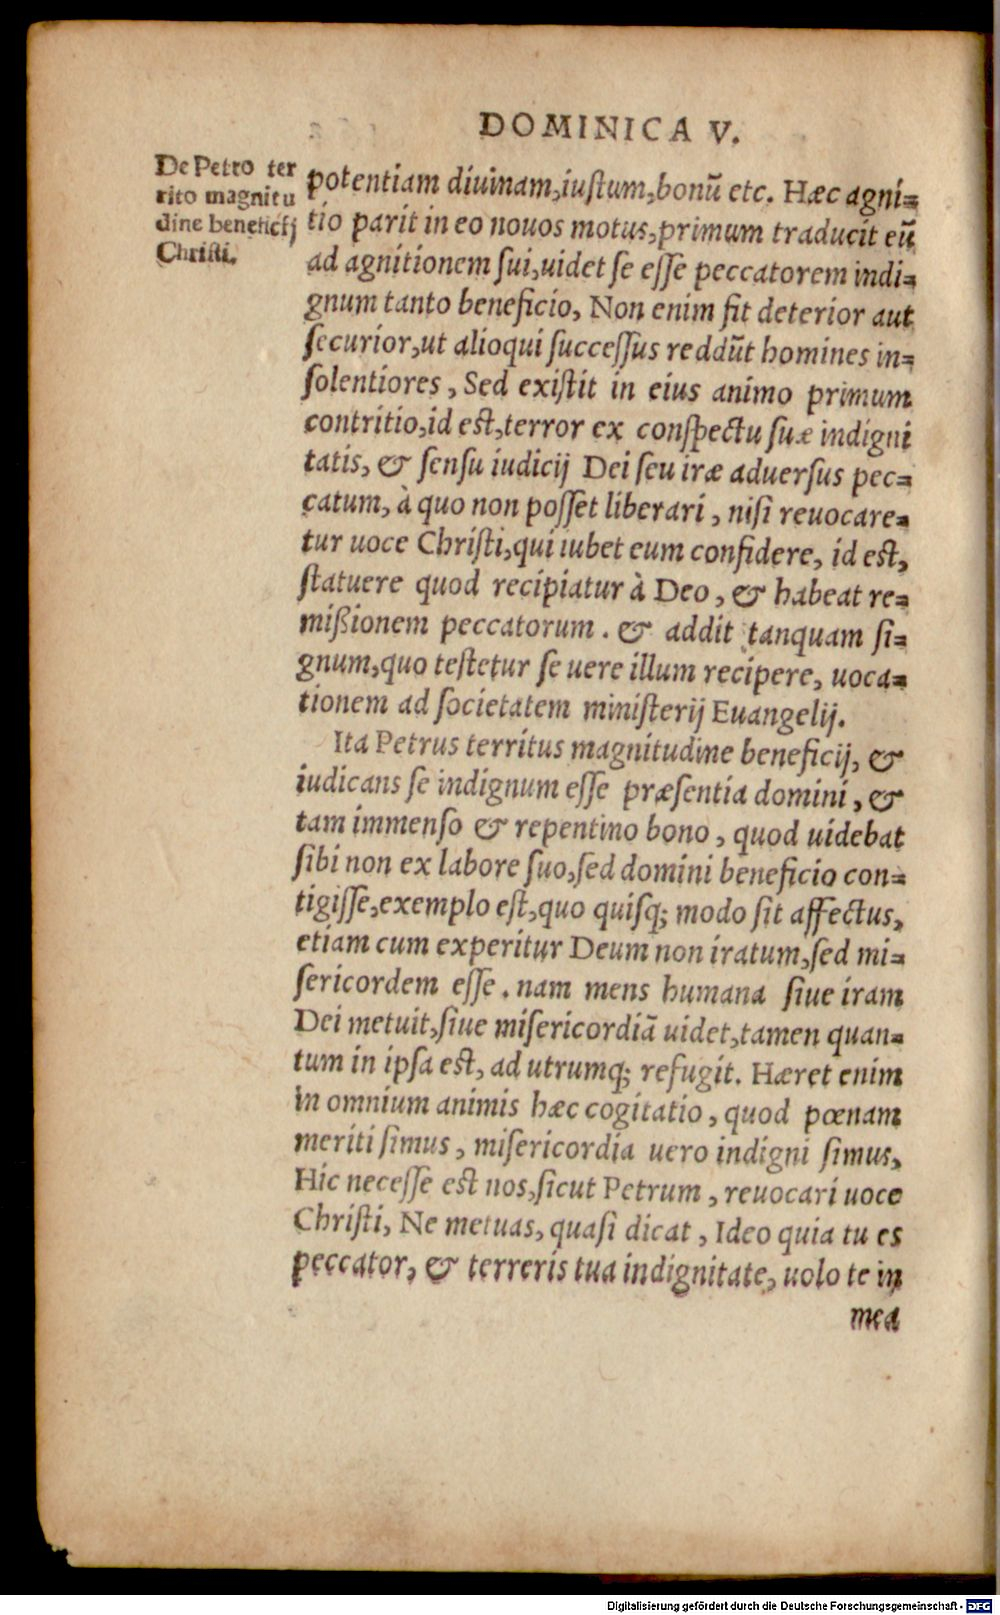 DOMINICA V.
De Petro ter
rito magnitu
dine beneficij
Christi.
potentiam diuinam,iuſtum,bonū etc. Hæc agni=
tio parit in eo nouos motus,primum traducit eū
ad agnitionem ſui,uidet ſe eſſe peccatorem indi=
gnum tanto beneficio, Non enim fit deterior aut
ſecurior,ut alioqui ſucceſſus reddūt homines in=
ſolentiores, Sed exiſtit in eius animo primum
contritio,id eſt,terror ex conſpectu ſuæ indigni
tatis, & ſenſu iudicij Dei ſeu iræ aduerſus pec=
catum, à quo non poſſet liberari, niſi reuocare=
tur uoce Chriſti,qui iubet eum confidere, id eſt,
ſtatuere quod recipiatur à Deo, & habeat re=
mißionem peccatorum. & addit tanquam ſi=
gnum,quo teſtetur ſe uere illum recipere, uoca=
tionem ad ſocietatem miniſterij Euangelij.
Ita Petrus territus magnitudine beneficij, &
iudicans ſe indignum eſſe præſentia domini, &
tam immenſo & repentino bono, quod uidebat
ſibi non ex labore ſuo,ſed domini beneficio con=
tigiſſe,exemplo eſt,quo quiſq; modo ſit affectus,
etiam cum experitur Deum non iratum,ſed mi=
ſericordem eſſe. nam mens humana ſiue iram
Dei metuit,ſiue miſericordiā uidet,tamen quan=
tum in ipſa eſt, ad utrumq; refugit. Hæret enim
in omnium animis hæc cogitatio, quod pœnam
meriti ſimus, miſericordia uero indigni ſimus,
Hic neceſſe eſt nos,ſicut Petrum, reuocari uoce
Chriſti, Ne metuas, quaſi dicat, Ideo quia tu es
peccator, & terreris tua indignitate, uolo te in
mea
Digitalisierung gefördert durch die Deutsche Forschungsgemeinschaft - DFG